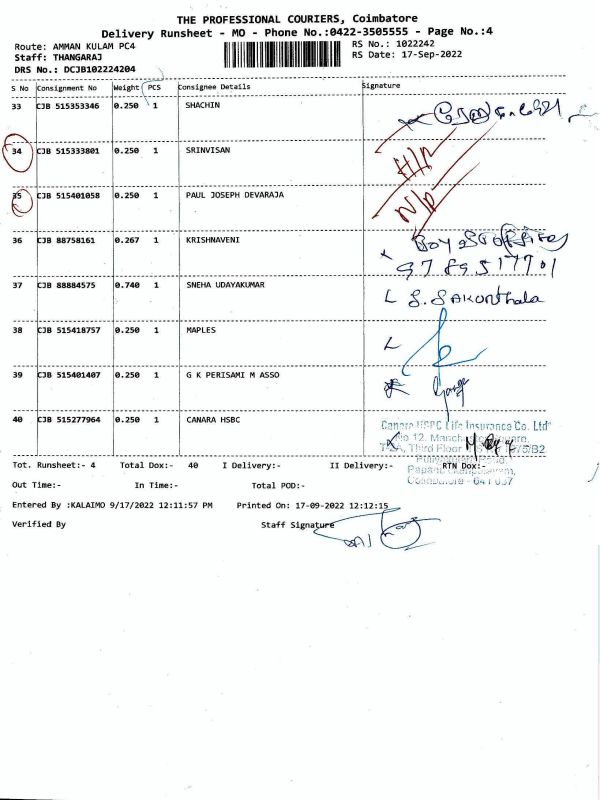 THE PROFESSIONAL COURIERS, Coimbatore
Delivery Runsheet - MO - Phone No.:0422-3505555 - Page No.:4
Route: AMMAN KULAM PC4 RS No.: 1022242
Staff: THANGARAJ RS Date: 17-Sep-2022
DRS No.: DCJB102224204
S No Consignment No Weight PCS Consignee Details Signature
33 CJB 515353346 0.250 1 SHACHIN
34 CJB 515333801 0.250 1 SRINVISAN
35 CJB 515401058 0.250 1 PAUL JOSEPH DEVARAJA N/P
36 CJB 88758161 0.267 1 KRISHNAVENI
9789517701
37 CJB 88884575 0.740 1 SNEHA UDAYAKUMAR S. SAKUNthala
38 CJB 515418757 0.250 1 MAPLES
39 CJB 515401407 0.250 1 G K PERISAMI M ASSO
40 CJB 515277964 0.250 1 CANARA HSBC Canara HSBC Life Insurance Co. Ltd
No 12, Manch
Third Floor
Tot. Runsheet:- 4 Total Dox:- 40 I Delivery:- II Delivery:- RTN Dox:-
Coimbatore - 641 037
Out Time:- In Time:- Total POD:-
Entered By :KALAIMO 9/17/2022 12:11:57 PM Printed On: 17-09-2022 12:12:15
Verified By Staff Signature